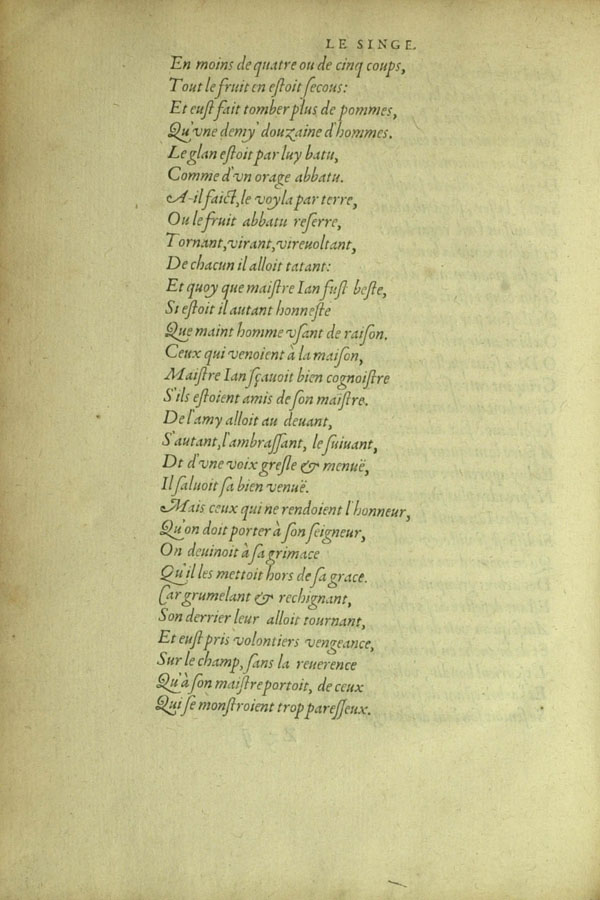 LE SINGE.
En moins de quatre ou de cinq coups,
Tout le fruit en eſtoit ſecous:
Et euſt fait tomber plus de pommes,
Qu'vne demy' douzaine d'hommes.
Le glan eſtoit par luy batu,
Comme d'vn orage abbatu.
A-il faict, le voyla par terre,
Ou le fruit abbatu reſerre,
Tornant, virant, vireuoltant,
De chacun il alloit tatant:
Et quoy que maiſtre Ian fuſt beſte,
Si eſtoit il autant honneſte
Que maint homme vſant de raiſon.
Ceux qui venoient à la maiſon,
Maiſtre Ian ſçauoit bien cognoiſtre
S'ils eſtoient amis de ſon maiſtre.
De l'amy alloit au deuant,
S'autant, l'ambraſſant, le ſuiuant,
Dt d'vne voix greſle & menuë,
Il ſaluoit ſa bien venuë.
Mais ceux qui ne rendoient l'honneur,
Qu'on doit porter à ſon ſeigneur,
On deuinoit à ſa grimace
Qu'il les mettoit hors de ſa grace.
Car grumelant & rechignant,
Son derrier leur alloit tournant,
Et euſt pris volontiers vengeance,
Sur le champ, ſans la reuerence
Qu'à ſon maiſtre portoit, de ceux
Qui ſe monſtroient trop pareſſeux.